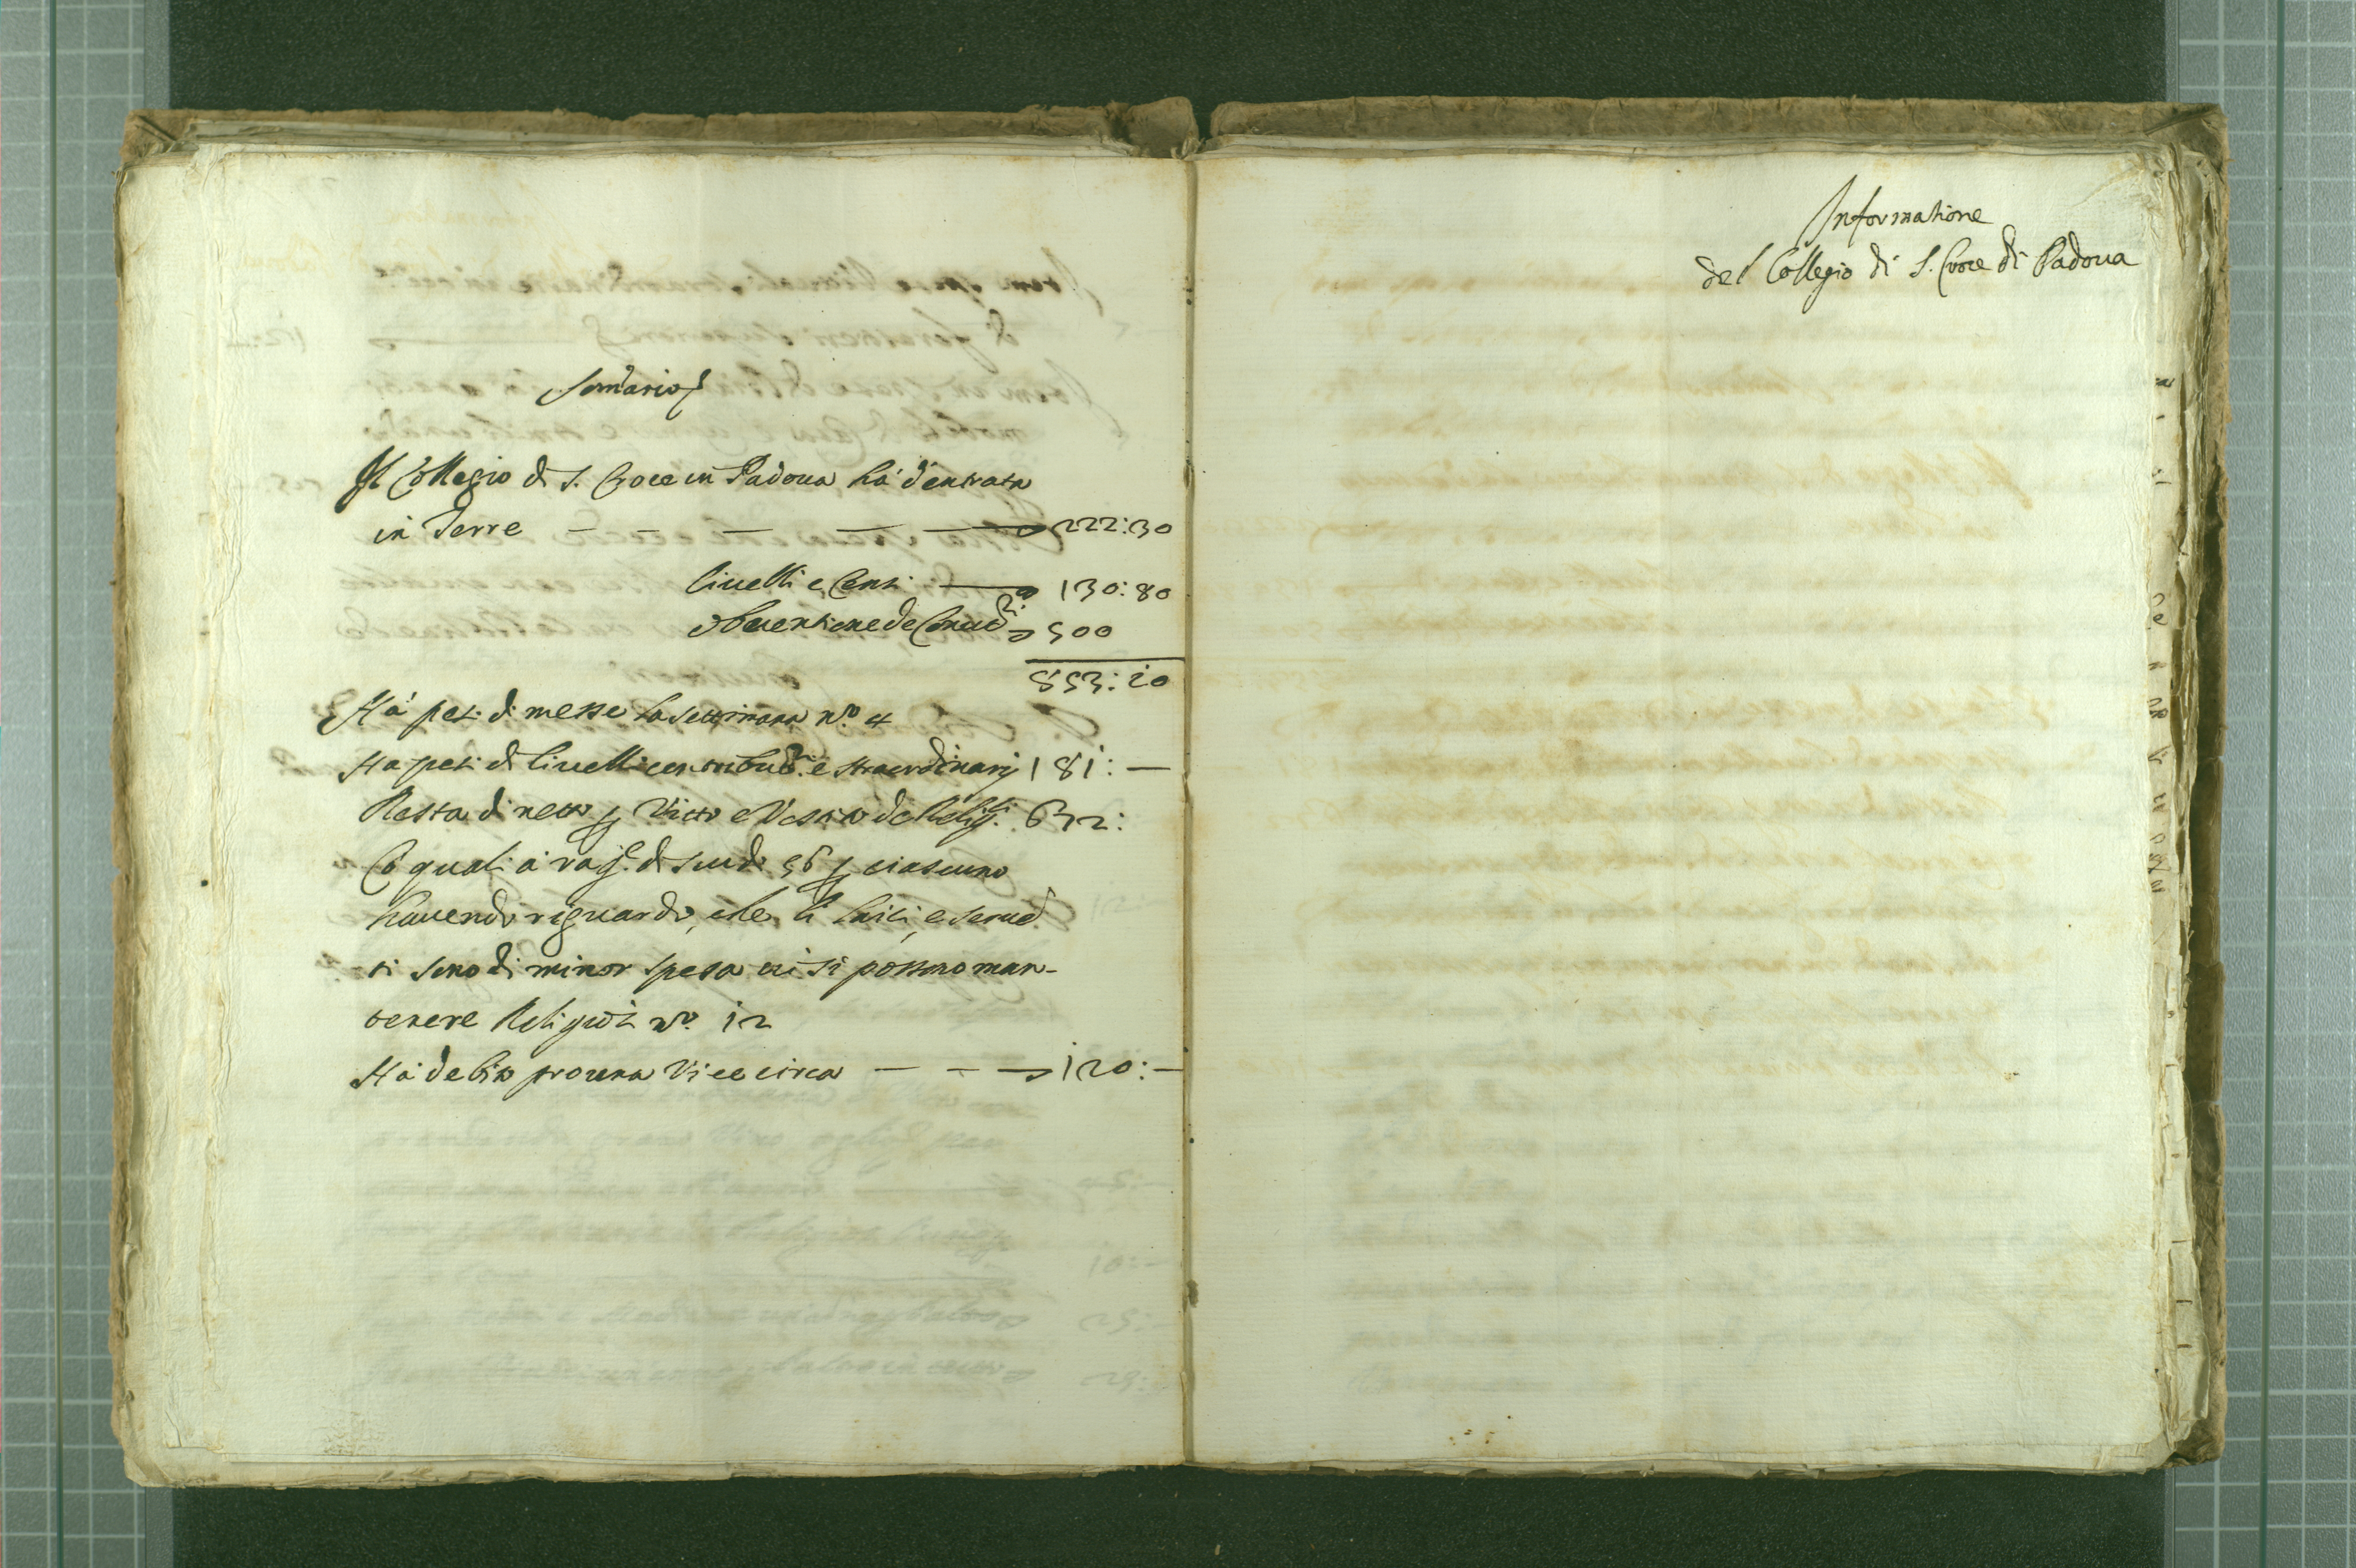 Som̃ario
Il Collegio di S. Croce in Padoua hà d'entrata
in Terre — — — — — 222:30
liuelli e Censi — 130:80
obuentione de Conuiti 500
853:10
Hà pesi di messe la settimana N.o 4
Ha pesi di liuelli contribuõni e straordinarij 181: —
Resta di netto p Vitto e Vestito de Religsi 632:
Co quali à ragе di scudi 56 p ciascuno
hauendo riguardo, che li laici, e serue
ti sono di minor spesa ui si possono man-
tenere Religiosi N.o 12
Hà debiti circa — — — 120: —
Informatione
del Collegio di S. Croce di Padoua